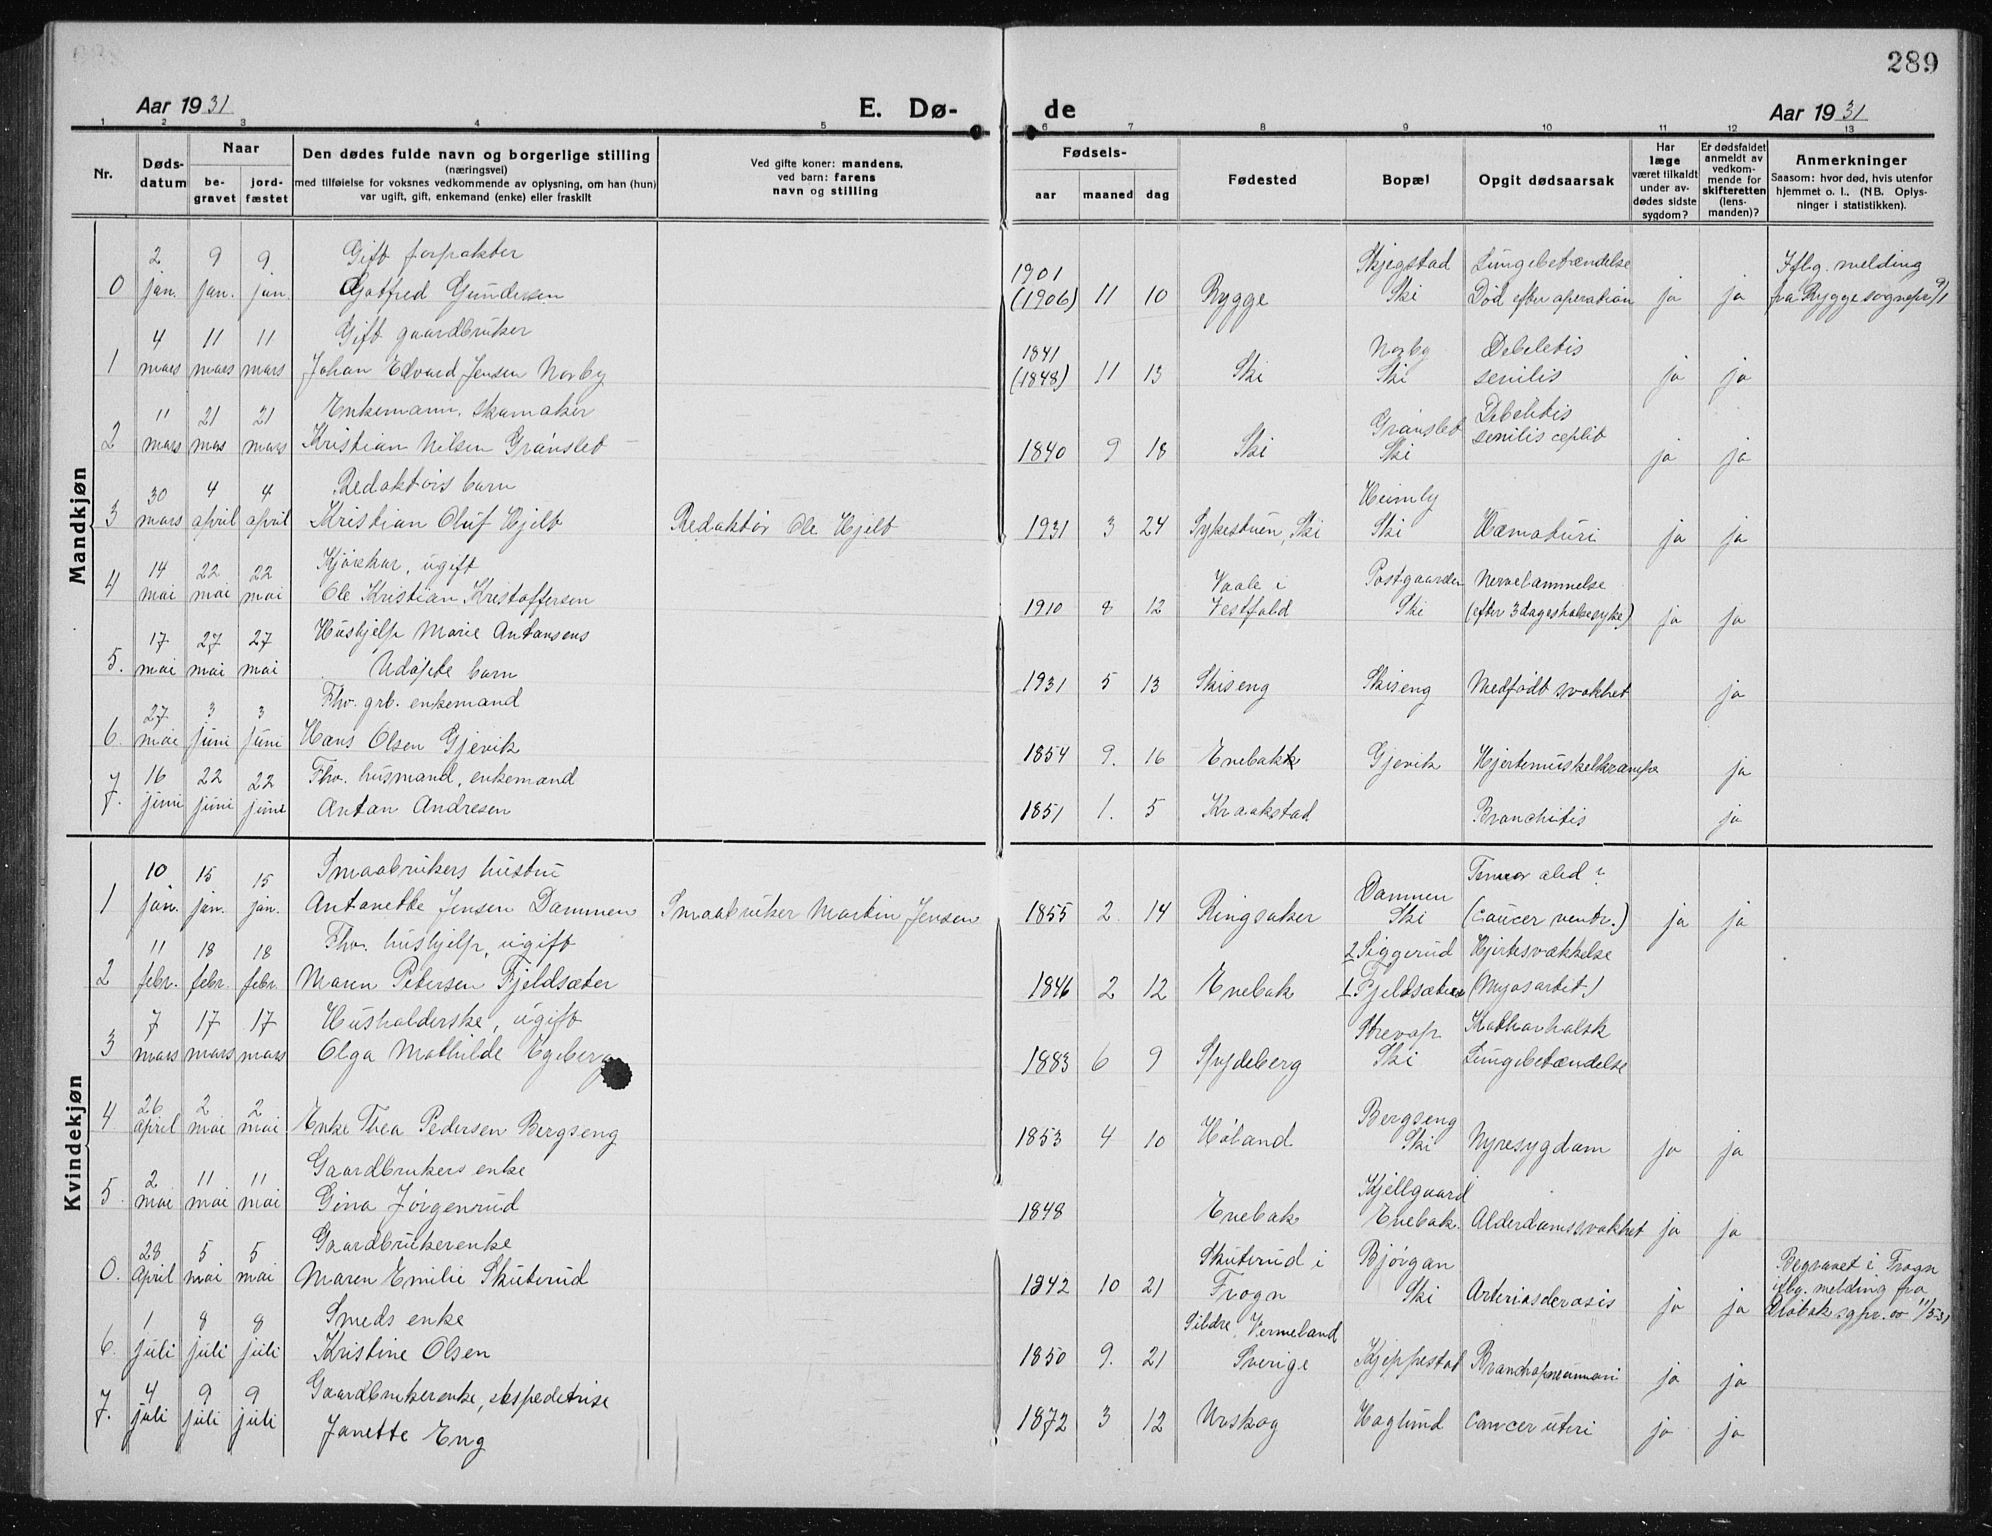 289
Aar 1931 E. Dø- de Aar 1931
1 2 3 4 5 6 7 8 9 10 11 12 13
Nr.
Døds-datum
Naar
be-gravet
jord-fæstet
Den dødes fulde navn og borgerlige stilling
(næringsvei)
med tilføielse for voksnes vedkommende av oplysning, om han (hun)
var ugift, gift, enkemand (enke) eller fraskilt
Ved gifte koner: mandens,
ved barn: farens
navn og stilling
Fødsels-
aar maaned dag
Fødested
Bopæl
Opgit dødsaarsak
Har
læge
været tilkaldt
under av-
dødes sidste
sygdom?
Er dødsfaldet
anmeldt av
vedkom-
mende for
skifteretten
(lens-
manden)?
Anmerkninger
Saasom: hvor død, hvis utenfor
hjemmet o. l., (NB. Oplys-
ninger i statistikken).
Mandkjøn
2 9 9 Gift forpakter 1901 Skjegstad Lungebetændelse Iflg. melding
0 jan. jan. jan. Gotfred Gundersen (1906) 11 10 Rygge Ski Død efter operation ja ja fra Rygge sognepr. 9/1
4 11 11 Gift gaardbruker 1841 Norby Debeletis
1 mars mars mars Johan Edvard Jensen Norby (1848) 11 13 Ski Ski senilis ja ja
11 21 21 Enkemann, skomaker Grønslet Debeletis
2 mars mars mars Kristian Nilsen Grønslet 1840 9 18 Ski Ski senilis ja ja
30 4 4 Redaktørs barn Heimly
3 mars april april Kristian Oluf Hjelt Redaktør Ole Hjelt 1931 3 24 Sykestuen, Ski Ski Hæmaturi ja ja
14 22 22 ugift Vaale i Postgaarden Nervelammelse
4 mai mai mai Ole Kristian Kristoffersen 1910 8 12 Vestfold Ski (efter 3 dages halsesyke) ja ja
17 27 27 Hushjelp Marie Antonsens
5. mai mai mai Udøpte barn 1931 5 13 Skiseng Skiseng Medfødt svakhet ja
27 3 3 Fhv. grb. enkemand
6. mai juni juni Hans Olsen Gjevik 1854 9. 16 Enebakk Gjevik Hjertemuskelkrampe ja
16 22 22 Fhv. husmand, enkemand
7. juni juni juni Anton Andresen 1851 1. 5 Kraakstad Bronchitis ja
Kvindekjøn
10 15 15 Smaabrukers hustru Dammen Tumor abd?
1 jan. jan. jan. Antonette Jensen Dammen Smaabruker Martin Jensen 1855 2. 14 Ringsaker Ski (Cancer ventr.) ja ja
11 18 18 Fhv. hushjelp, ugift 2 Siggerud Hjertesvækkelse
2 febr. febr. febr. Maren Petersen Fjeldsæter 1846 2 12 Enebak 1 Fjeldsæteren (Myocarbit)
7 17 17 Husholderske, ugift
3 mars mars mars Olga Mathilde Egeberg 1883 6 9 Spydeberg Ski Lungebetændelse
26 2 2 Bergseng
4. april mai mai Enke Thea Pedersen Bergseng 1853 4 10 Høland Ski Nyresygdom ja ja
2 11 11 Gaardbrukers enke Kjellgaard
5. mai mai mai Gina Jørgensrud 1848 Enebak Enebak. Alderdomssvakhet ja ja
28 5 5 Gaardbrukerenke Skuterud i Bjørgan Begravet i Frogn
0. april mai mai Maren Emilie Skuterud 1842 10 21 Frogn Ski Arteriosclerosis ja ja iflg. melding fra
Drøbak sgpr. av 11/5 31
1 8 8 Smeds enke Vermeland
6. juli juli juli Kristine Olsen 1850 9. 21 Sverige Kjeppestad Bronchopneumoni ja ja
4 9 9 Gaardbrukerenke, ekspeditrise
7. juli juli juli Janette Eng 1872 3 12 Urskog Haglund Cancer uteri ja ja